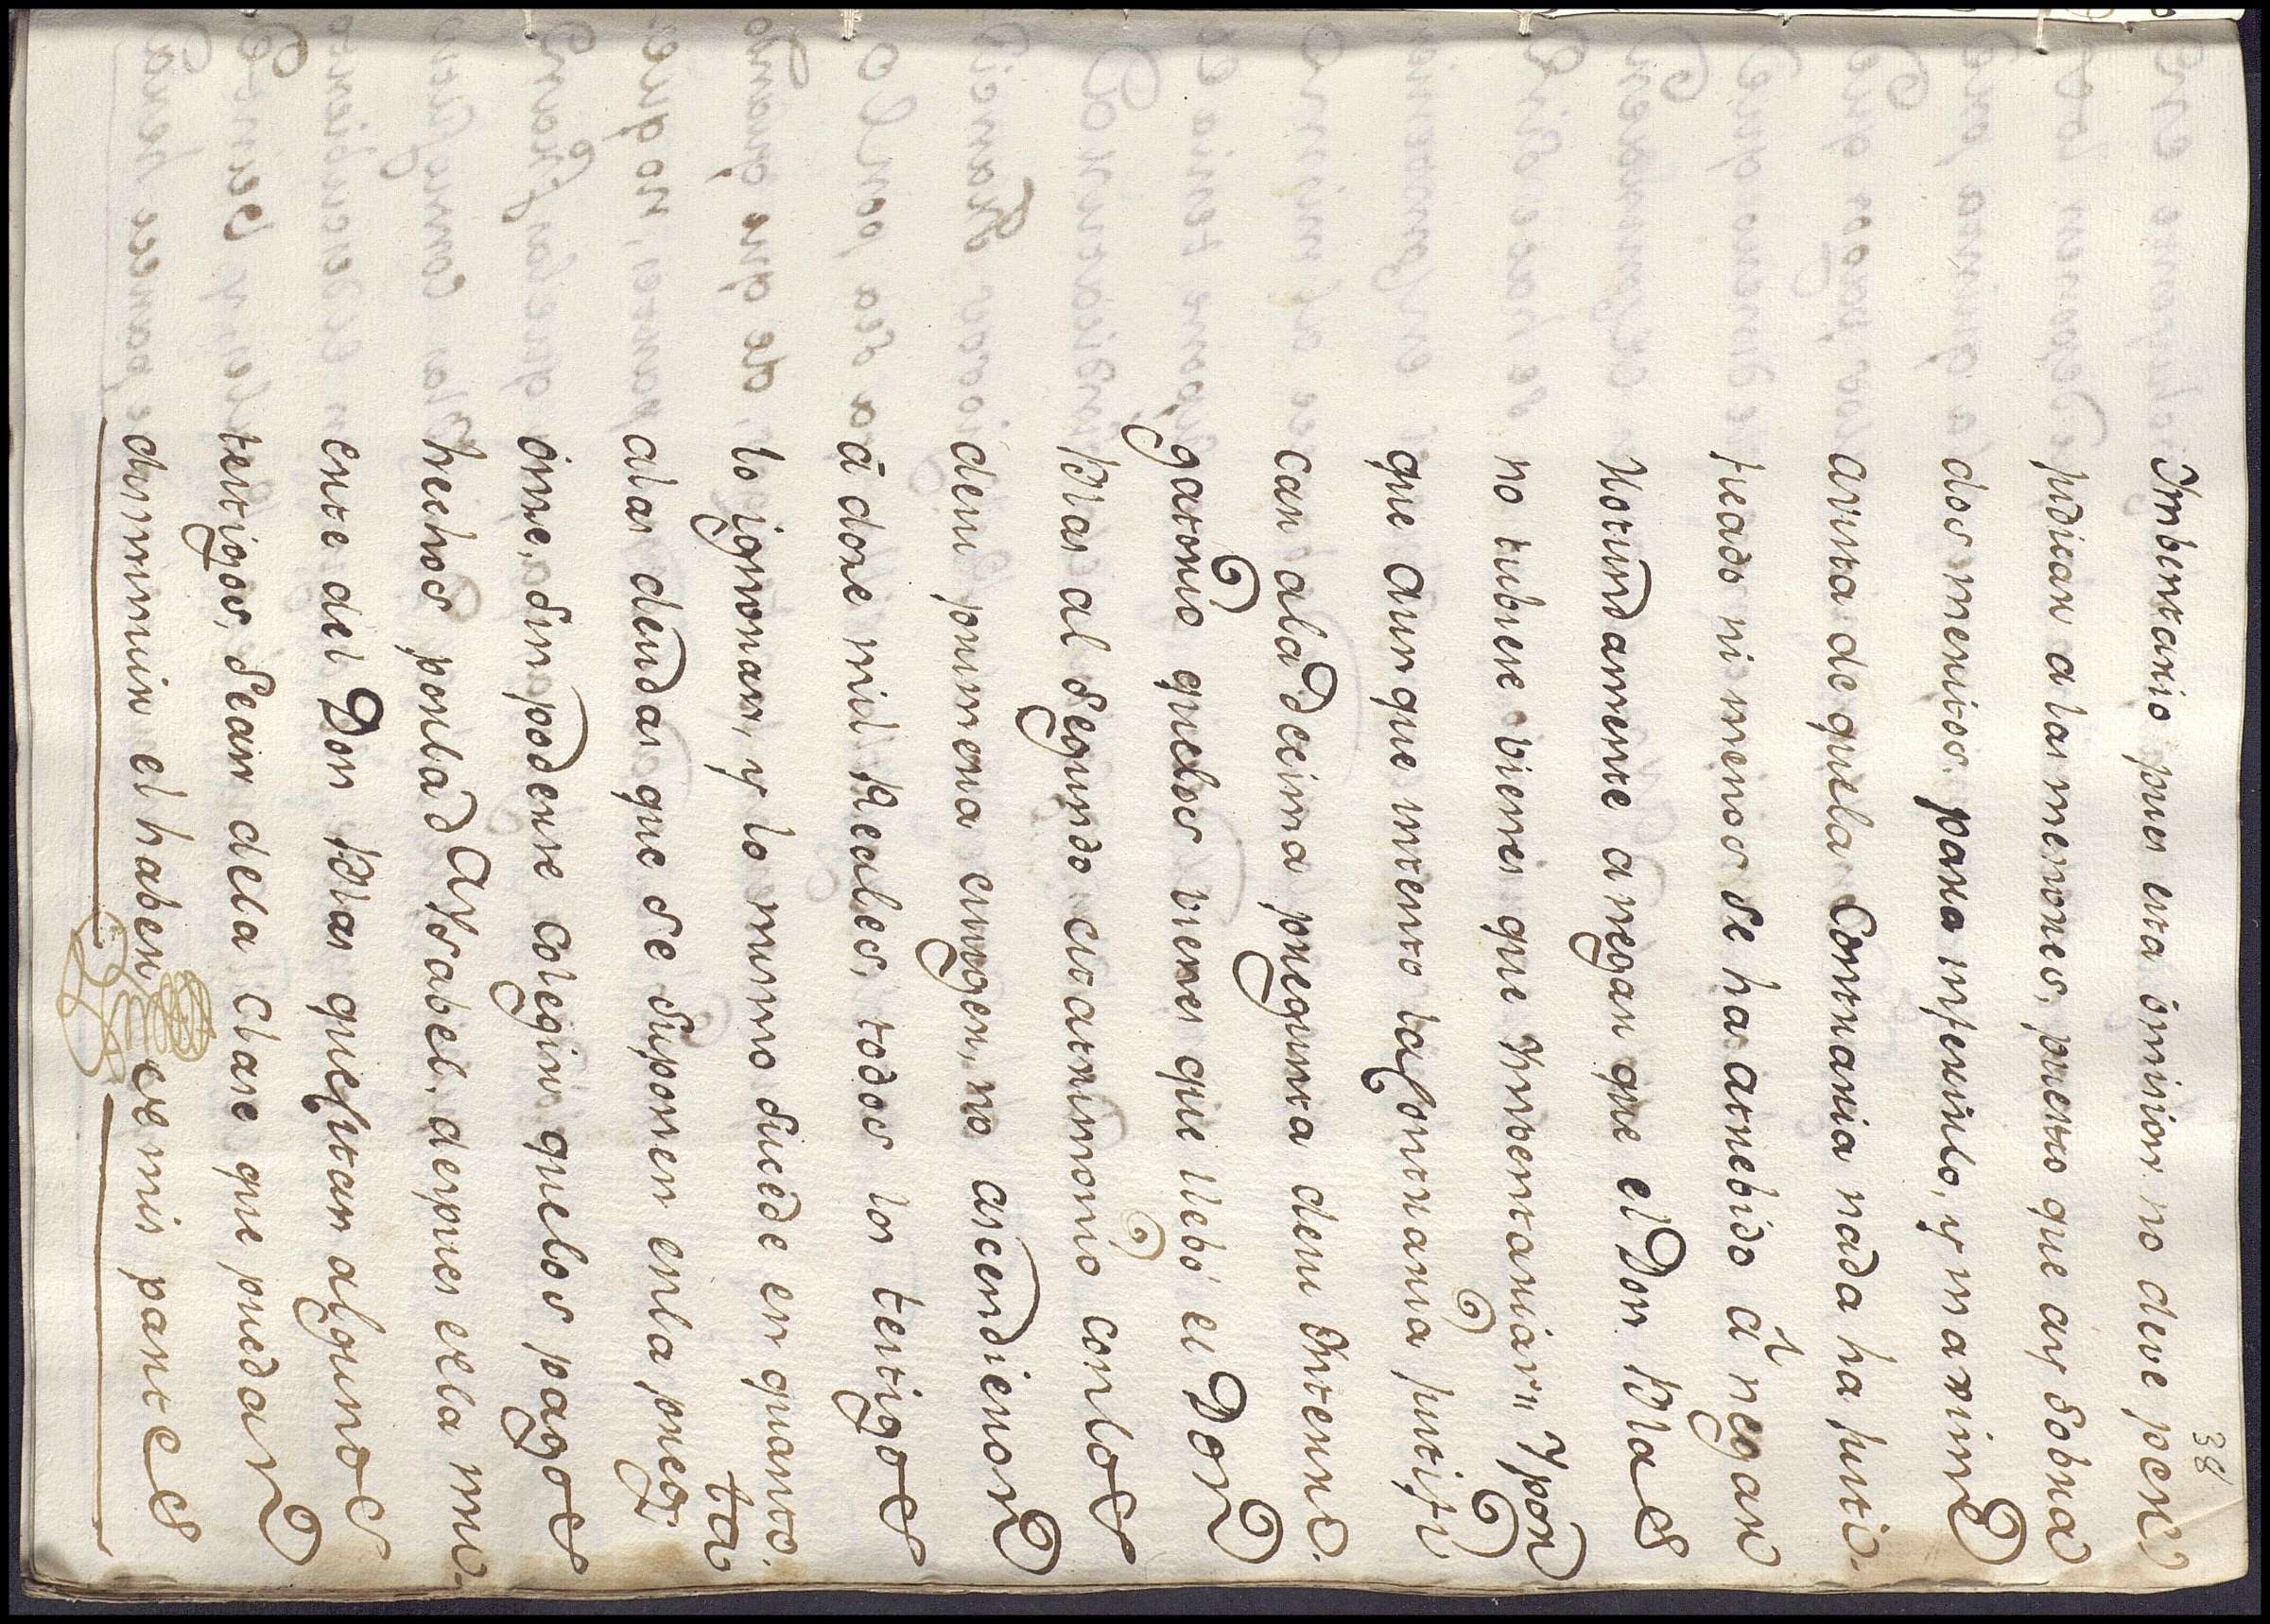 38
Imbentario pues esta ōmision no deve pere
judicar a las menores, puesto que ay sobra
dos meritos para inferirlo, y maxime
avista de quela Contraria nada ha justi-
ficado ni menos se ha atrebido á negar
Noturdamente a negar que el Don Blas
no tubiese bienes que Ymbentariar: Y por
que aunque intento la Contraria justifi-
car ala decima pregunta desu Interro-
gatorio quelos vienes que llebó el Don
Blas al segundo matrimonio conlos
desu primera muger, no ascendieron
ā doze mil Reales, todos los testigos
lo ignoran, y lo mismo sucede en quanto
alas deudas que se suponen enla pregta
onze, sin poderse colegir quelos pagos
hechos porlad Ysabel, despues dela mu-
erte del Don Blas quesitan algunos
testigos, sean dela clase que puedan
disminuir el haber de mis partes